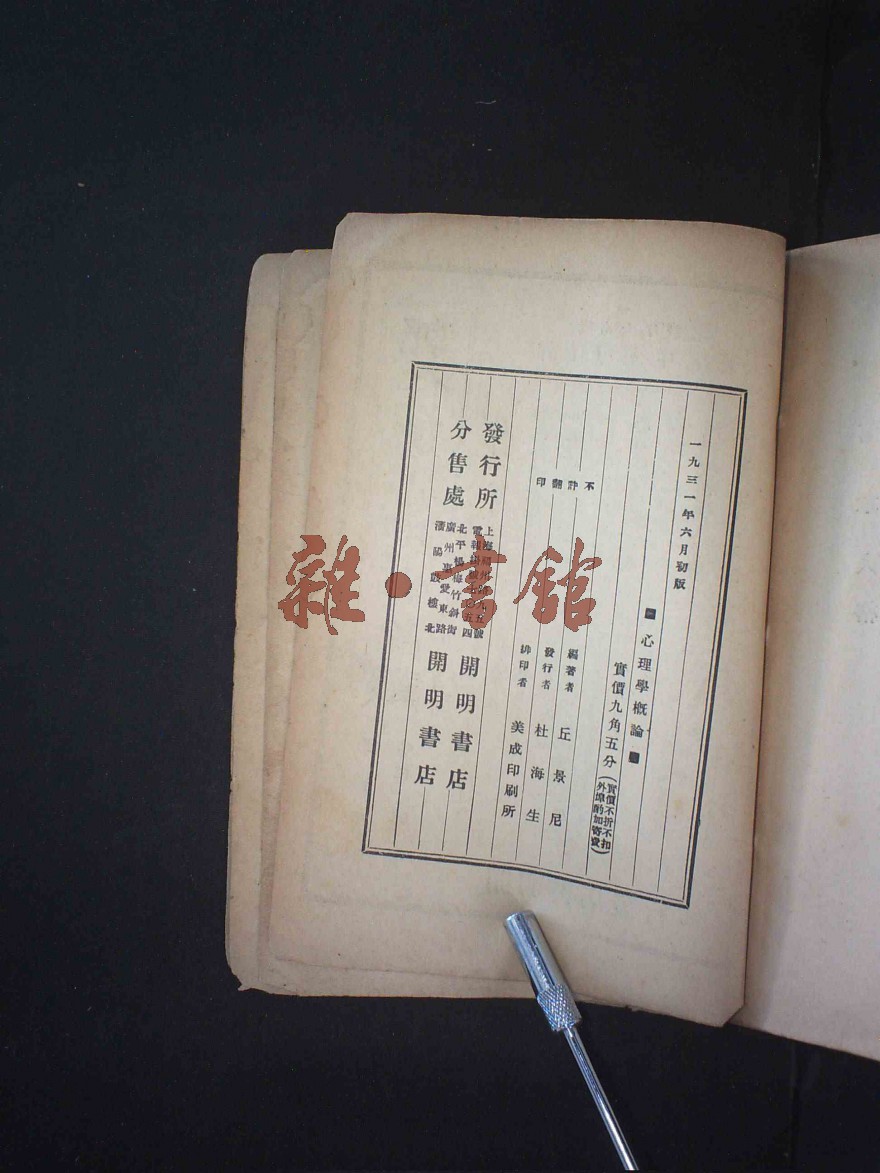 一九三一年六月初版
心理學概論
實價九角五分
(實價不折不扣
外埠酌加寄費)
不許翻印
編著者 丘景尼
發行者 杜海生
排印者 美成印刷所
發行所 開明書店
分售處 開明書店
雜·書館